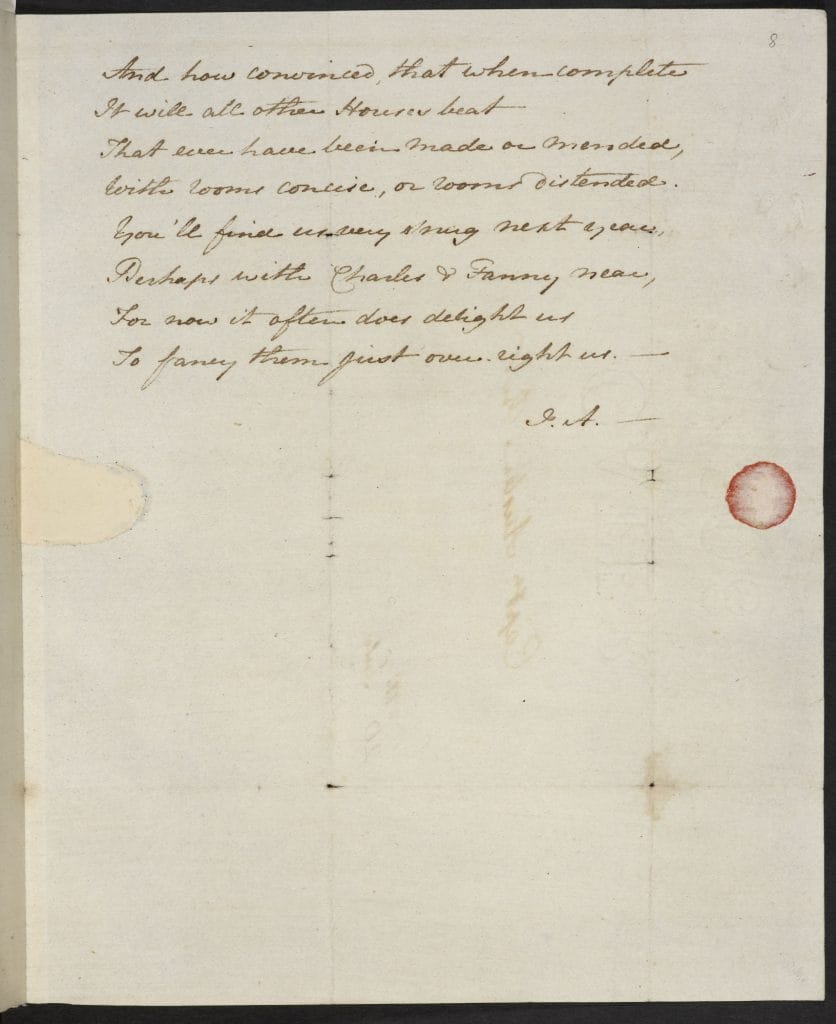 8
And how convinced, that when complete
It will all other Houses beat
That ever have been made or mended,
With rooms concise, or rooms distended.
You'll find us very snug next year,
Perhaps with Charles & Fanny near,
For now it often does delight us
To fancy them just over-right us. —
J. A. —